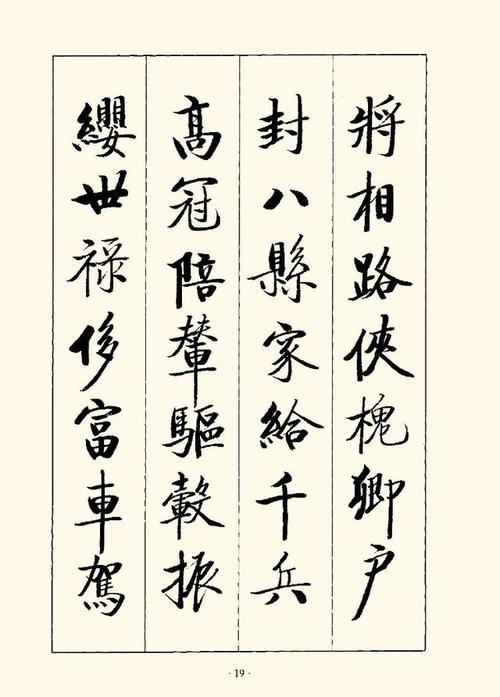 將相路俠槐卿户
封八縣家給千兵
高冠陪輦驅轂振
纓世禄侈富車駕
·19·